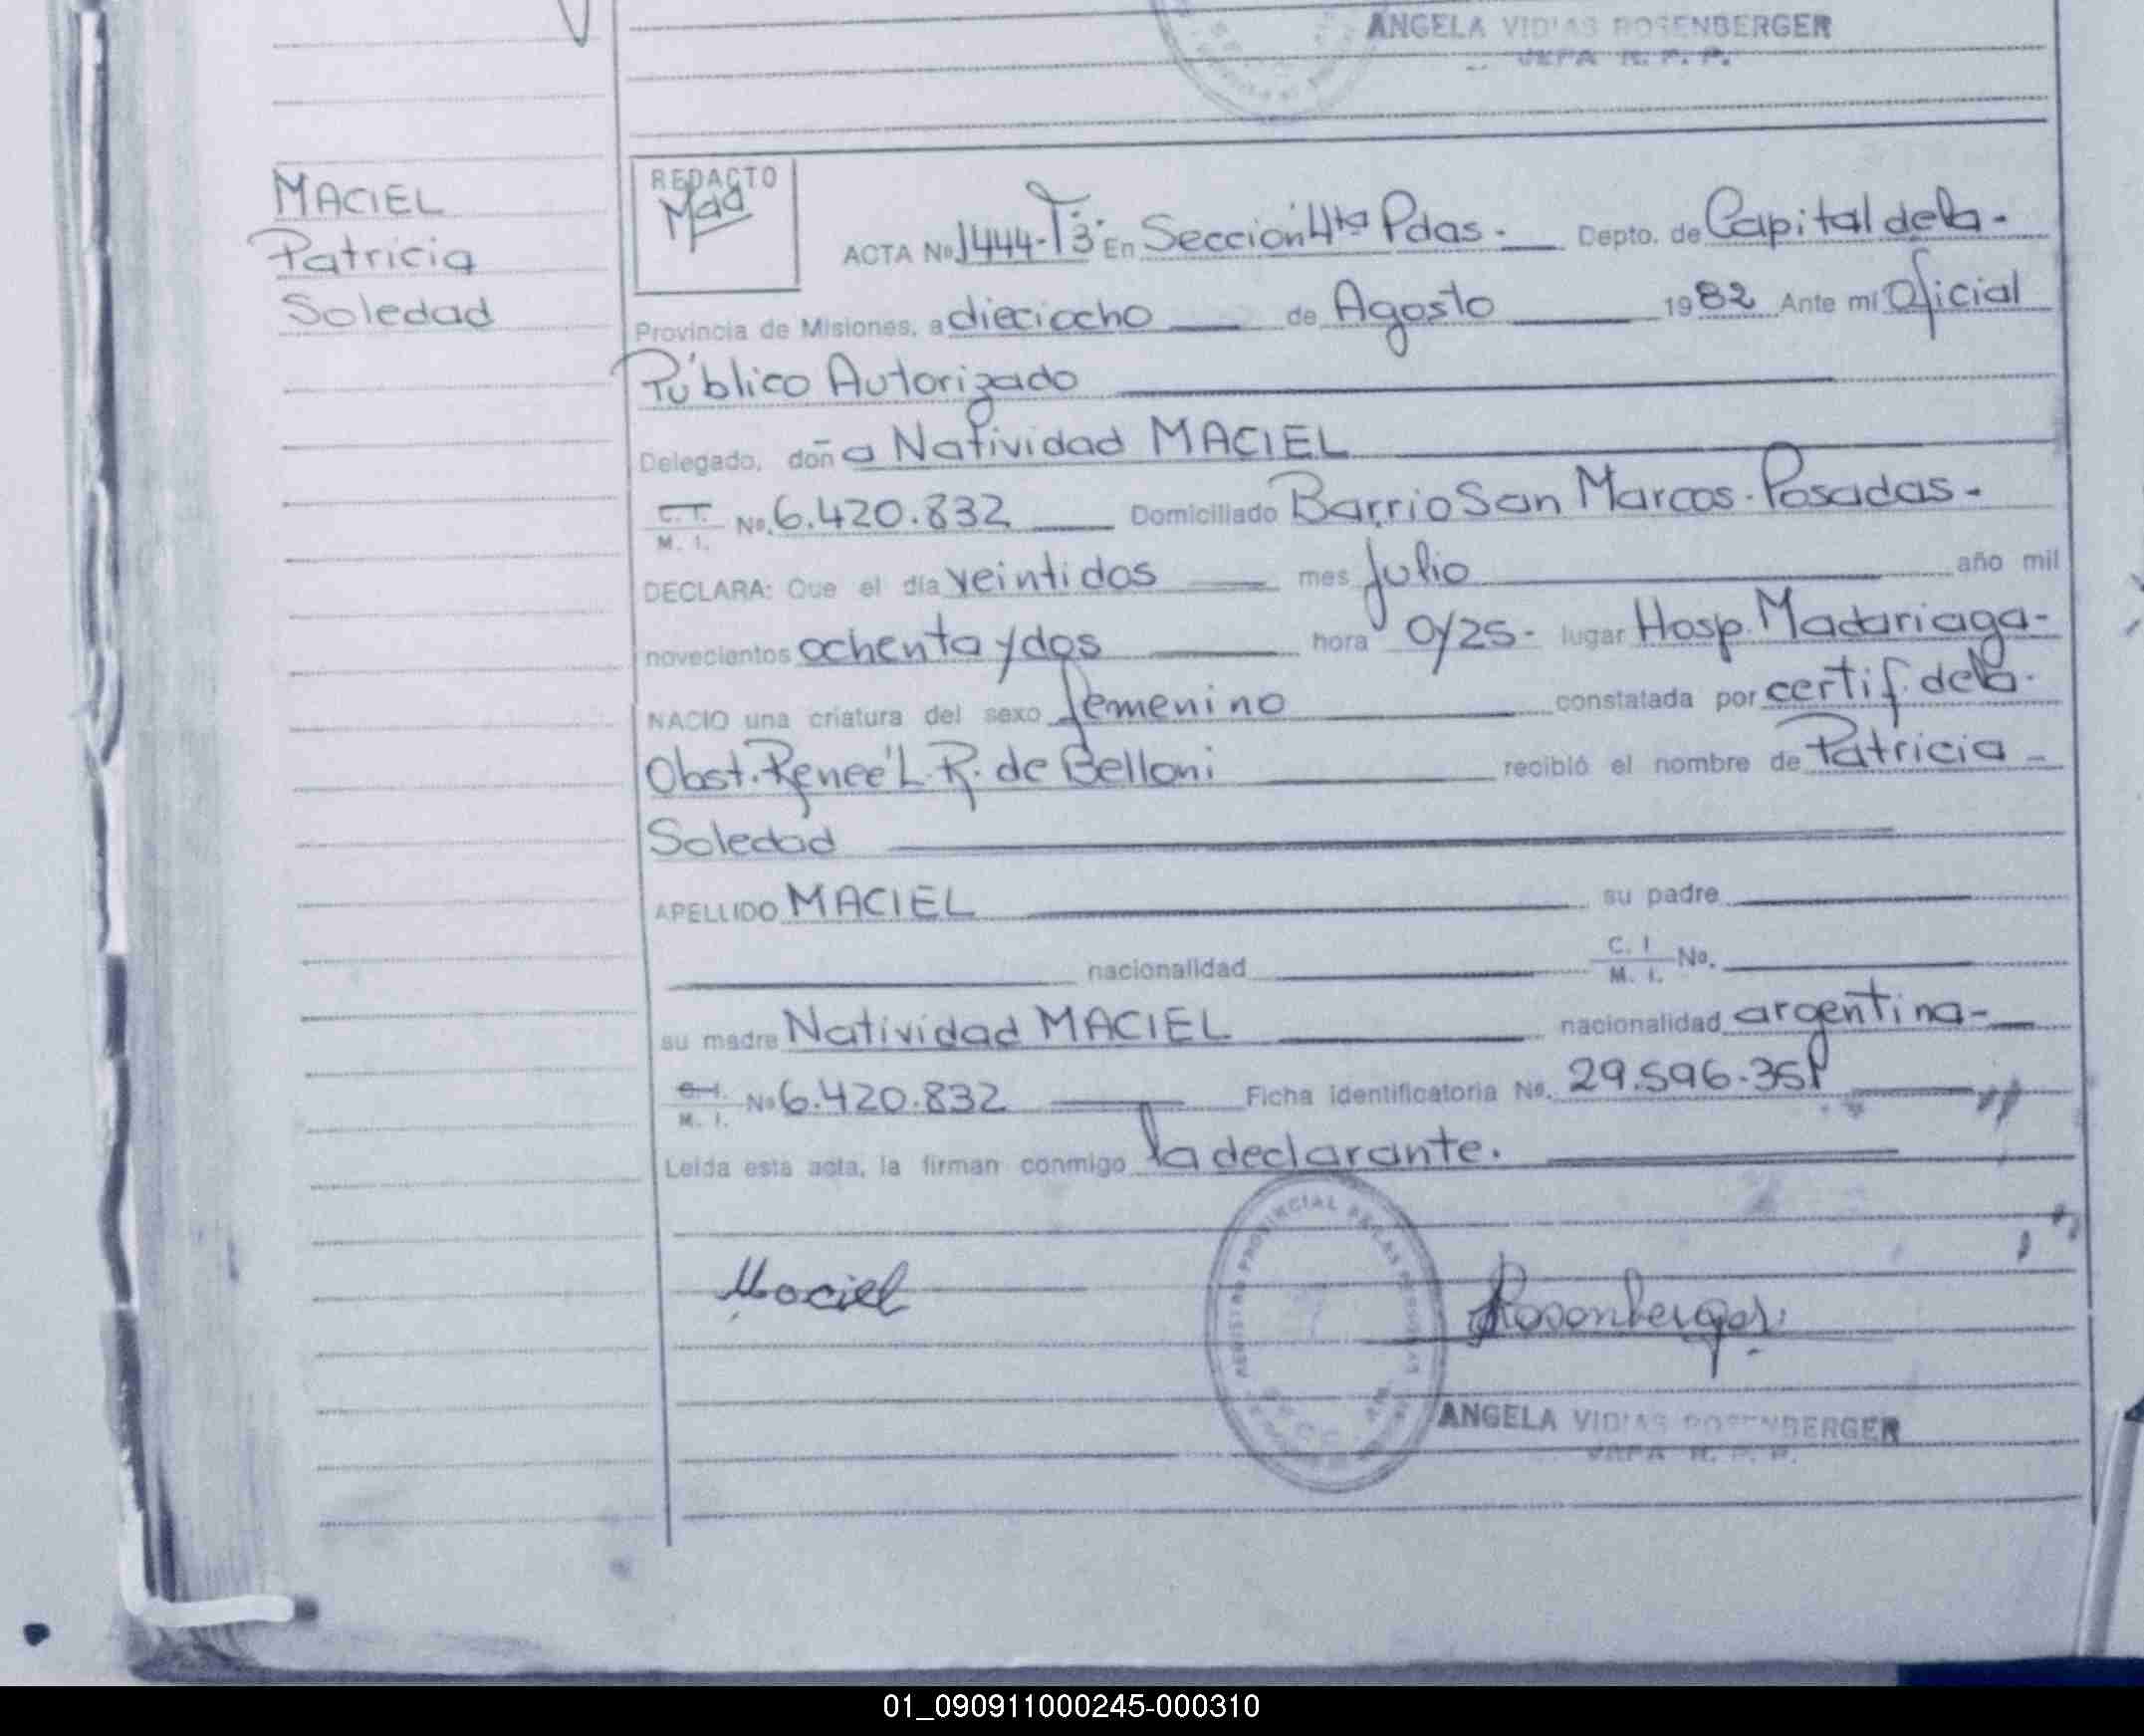 ANGELA VIDIAS ROSENBERGER
JEFA R. P. P.
MACIEL
Patricia
Soledad
REDACTO
ACTA No 1444-Tº3º En Sección 4ta Pdas. Depto. de Capital de la.
Provincia de Misiones, a dieciocho de Agosto 1982 Ante mí Oficial
Público Autorizado
Delegado, doña Natividad MACIEL
C. I. M. I. No. 6.420.832 Domiciliado Barrio San Marcos. Posadas.
DECLARA: Que el día veintidos mes Julio año mil
novecientos ochenta y dos hora 0/25- lugar Hosp. Madariaga-
NACIO una criatura del sexo femenino constatada por certif. de la.
Obst. Renee L. R. de Belloni recibió el nombre de Patricia -
Soledad
APELLIDO MACIEL su padre
nacionalidad C. I. M. I. No.
su madre Natividad MACIEL nacionalidad argentina-
C. I. M. I. No 6.420.832 Ficha identificatoria No. 29.596.351
Leída esta acta, la firman conmigo la declarante.
REGISTRO PROVINCIAL DE LAS PERSONAS
Maciel
Rosenberger
ANGELA VIDIAS ROSENBERGER
JEFA R. P. P.
01_090911000245-000310